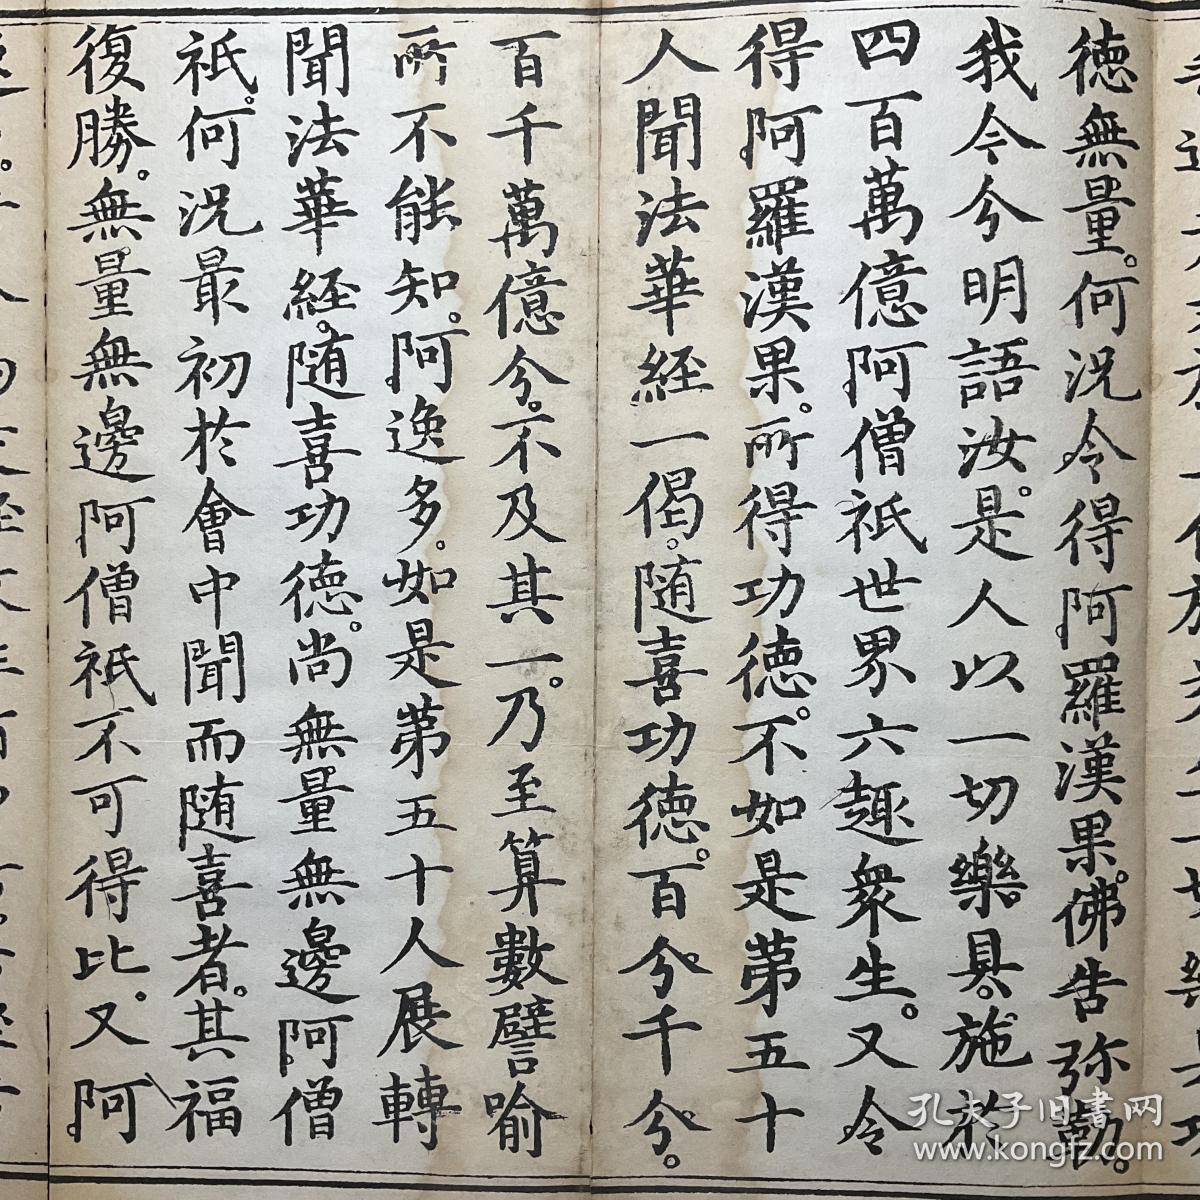 徳無量。何況令得阿羅漢果。佛告弥勒。
我今分明語汝。是人以一切樂具。施於
四百萬億阿僧祇世界六趣衆生。又令
得阿羅漢果。所得功徳。不如是苐五十
人聞法華経一偈。随喜功徳。百分千分。
百千萬億分。不及其一。乃至算數譬喻
所不能知。阿逸多。如是苐五十人展轉
聞法華経。随喜功徳。尚無量無邊阿僧
祇。何況最初於會中聞而随喜者。其福
復勝。無量無邊阿僧祇不可得比。又阿
孔夫子旧書网
www.kongfz.com